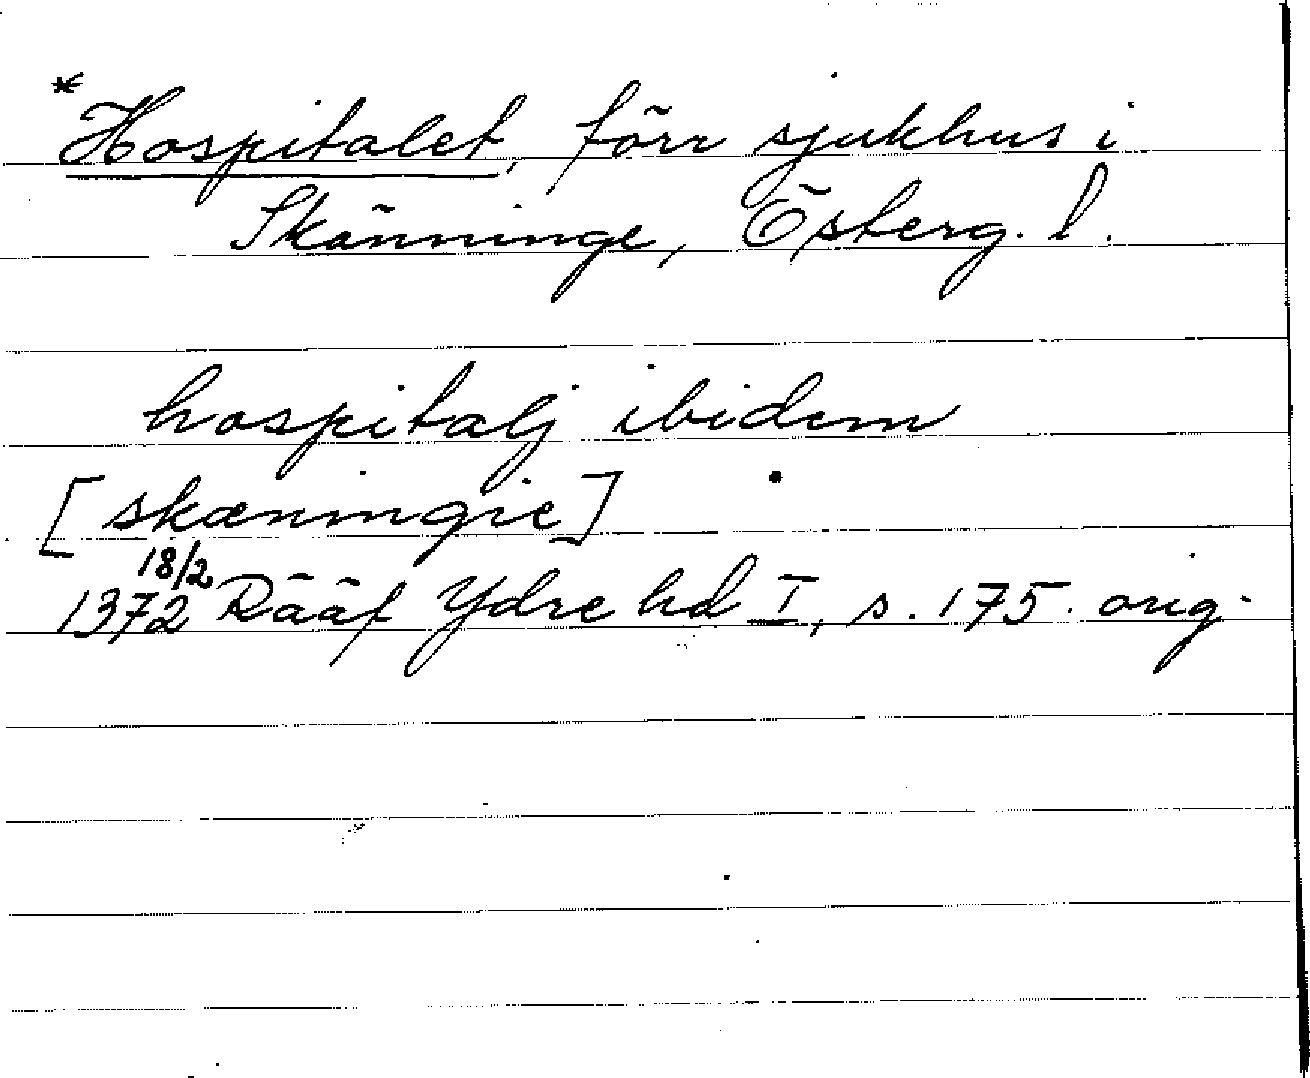 *Hospitalet, förr sjukhus i
Skänninge, Österg. l.
hospitalj ibidem
[skæningie]
18/2
1372 Rääf Ydre hd I, s. 175. orig.